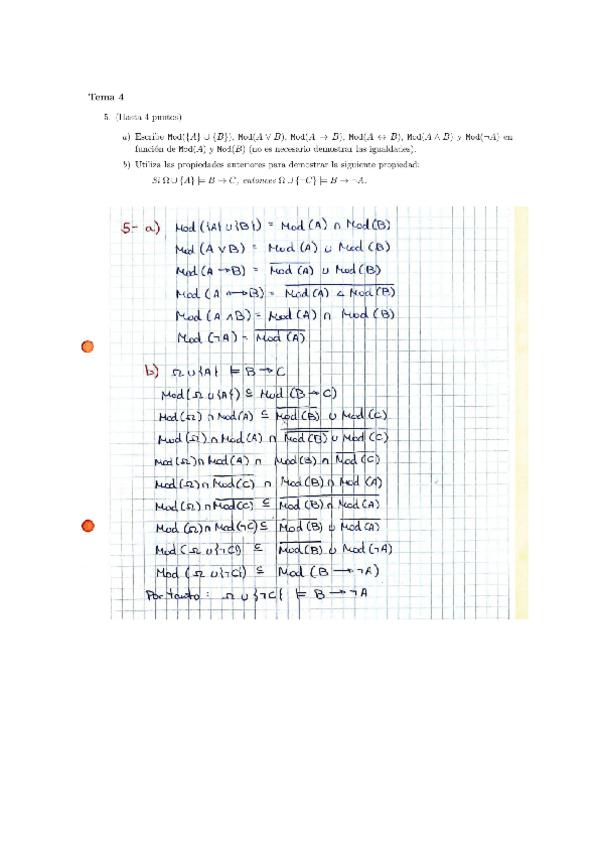 Tema 4
5. (Hasta 4 puntos)
a) Escribe Mod({A} ∪ {B}), Mod(A ∨ B), Mod(A → B), Mod(A ↔ B), Mod(A ∧ B) y Mod(¬A) en
función de Mod(A) y Mod(B) (no es necesario demostrar las igualdades).
b) Utiliza las propiedades anteriores para demostrar la siguiente propiedad:
Si Ω ∪ {A} ⊨ B → C, entonces Ω ∪ {¬C} ⊨ B → ¬A.
5- a) Mod ({A} ∪ {B}) = Mod (A) ∩ Mod (B)
Mod (A ∨ B) = Mod (A) ∪ Mod (B)
Mod (A → B) = \overline{Mod (A)} ∪ Mod (B)
Mod (A ↔ B) = \overline{Mod (A) Δ Mod (B)}
Mod (A ∧ B) = Mod (A) ∩ Mod (B)
Mod (¬A) = \overline{Mod (A)}
b) Ω ∪ {A} ⊨ B → C
Mod (Ω ∪ {A}) ⊆ Mod (B → C)
Mod (Ω) ∩ Mod (A) ⊆ \overline{Mod (B)} ∪ Mod (C)
Mod (Ω) ∩ Mod (A) ∩ \overline{\overline{Mod (B)} ∪ Mod (C)}
Mod (Ω) ∩ Mod (A) ∩ Mod (B) ∩ \overline{Mod (C)}
Mod (Ω) ∩ \overline{Mod (C)} ∩ Mod (B) ∩ Mod (A)
Mod (Ω) ∩ \overline{Mod (C)} ⊆ \overline{Mod (B) ∩ Mod (A)}
Mod (Ω) ∩ Mod (¬C) ⊆ \overline{Mod (B)} ∪ \overline{Mod (A)}
Mod (Ω ∪ {¬C}) ⊆ \overline{Mod (B)} ∪ Mod (¬A)
Mod (Ω ∪ {¬C}) ⊆ Mod (B → ¬A)
Por tanto: Ω ∪ {¬C} ⊨ B → ¬A